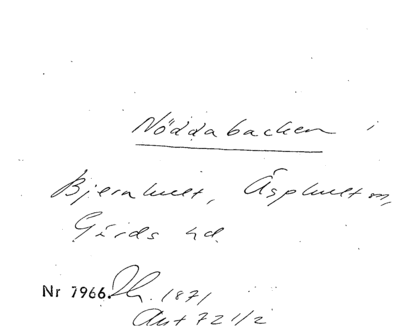 Nöddabacken i
Bjernhult, Äsphult sn,
Gärds hd.
Nr 7966. 1871
Ant 72 1/2